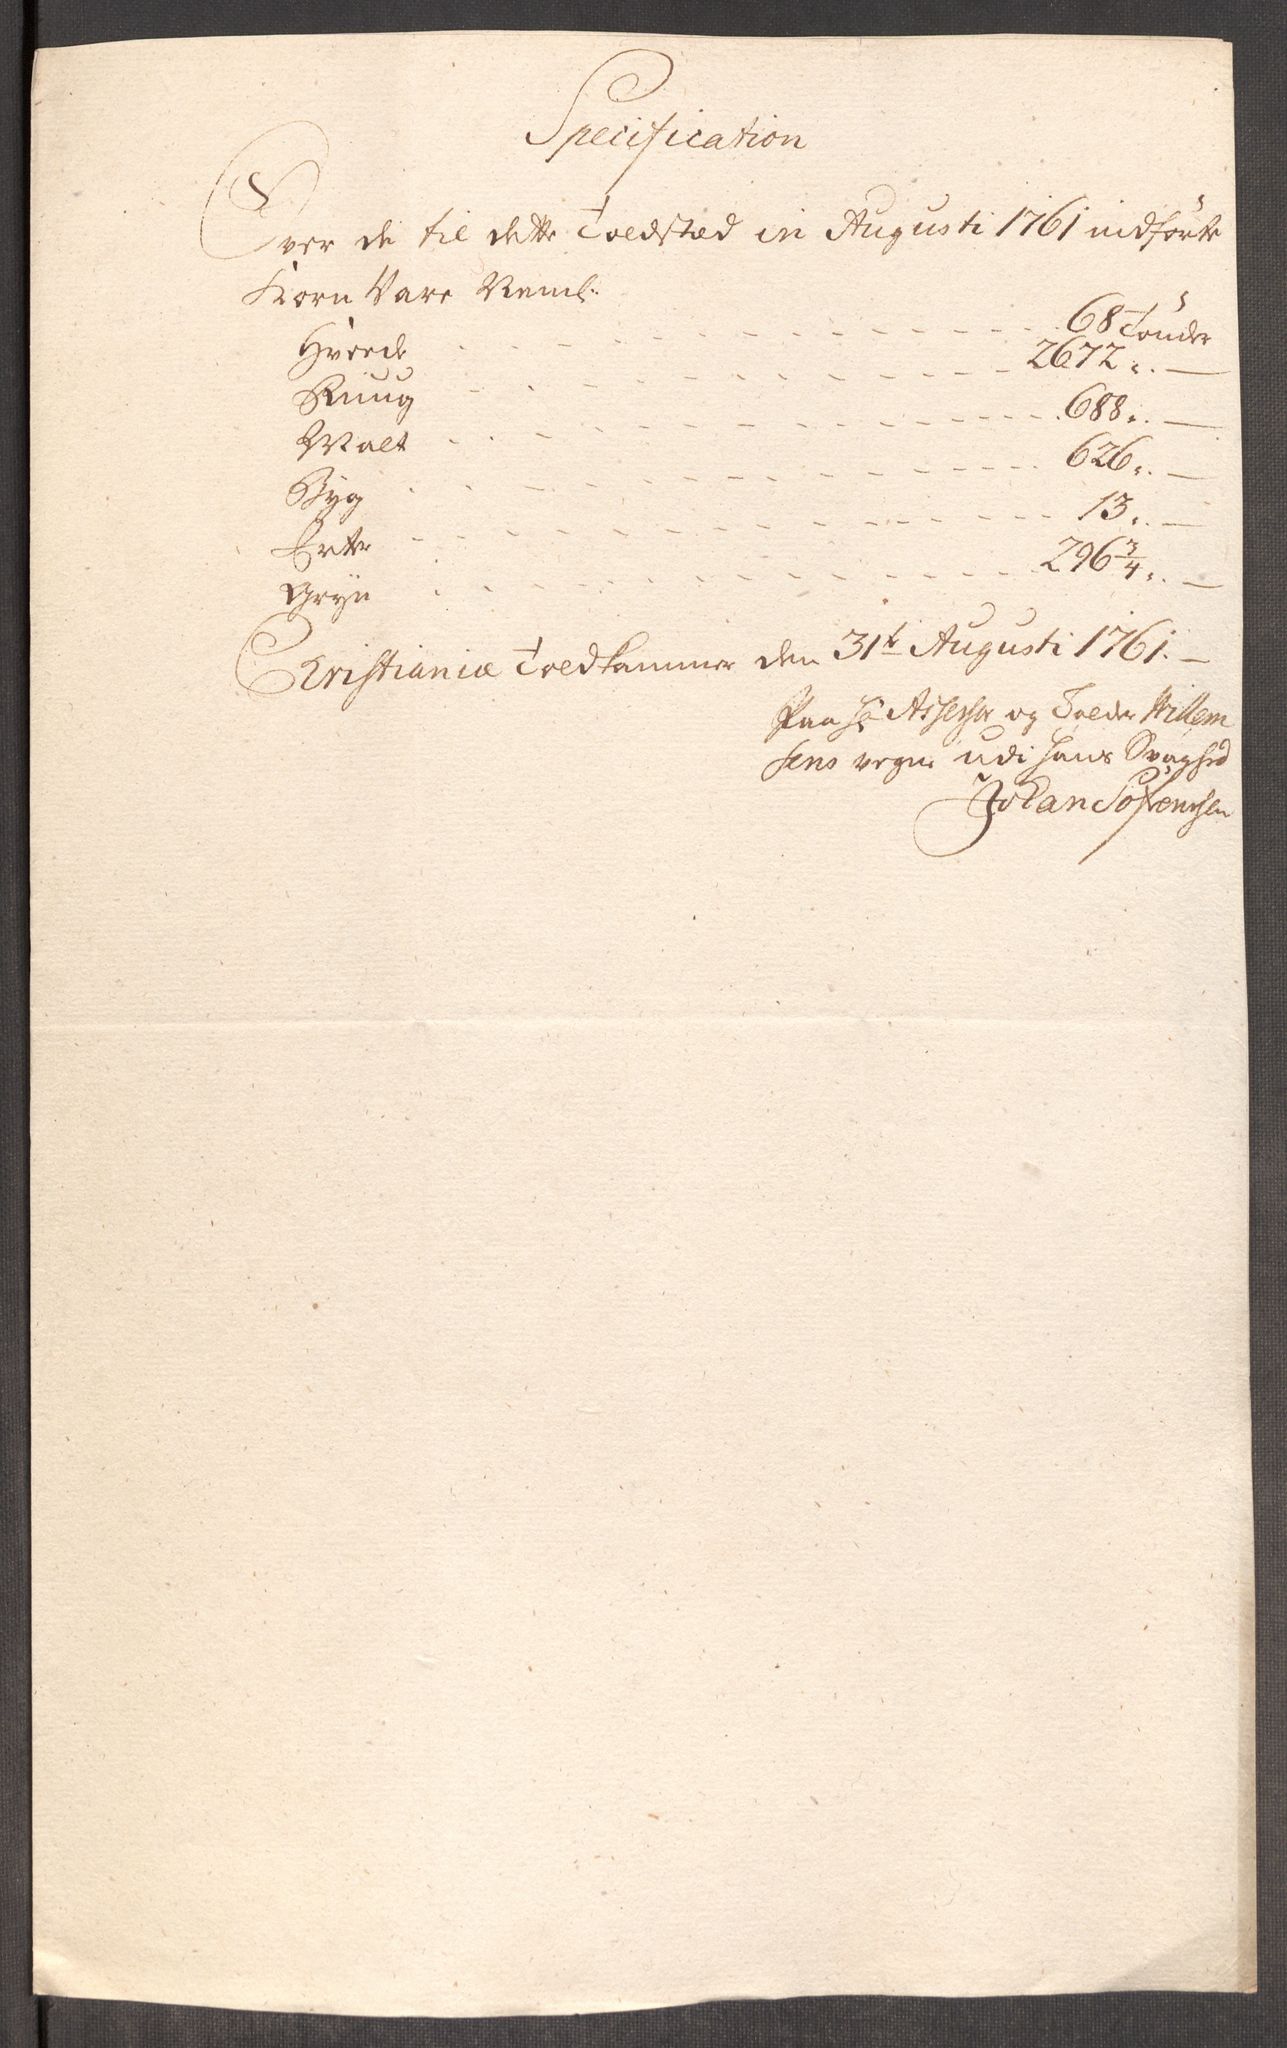 Specification
Over de til dette Toldsted in Augusti 1761 indförte
Korn Vare Neml:
Hvede - - - 68 Tönder
Ruug - - - 2672 „ —
Malt - - - 688 „ —
Byg - - - 626 „ —
Erter - - - 13 „ —
Gryn - - - 296 3/4 „ —
Christianiæ Toldkammer den 31te Augusti 1761. —
Paa Hr Assessor og Tolder Willem
sens vegne udi hans Svaghed
Johan Sörensen